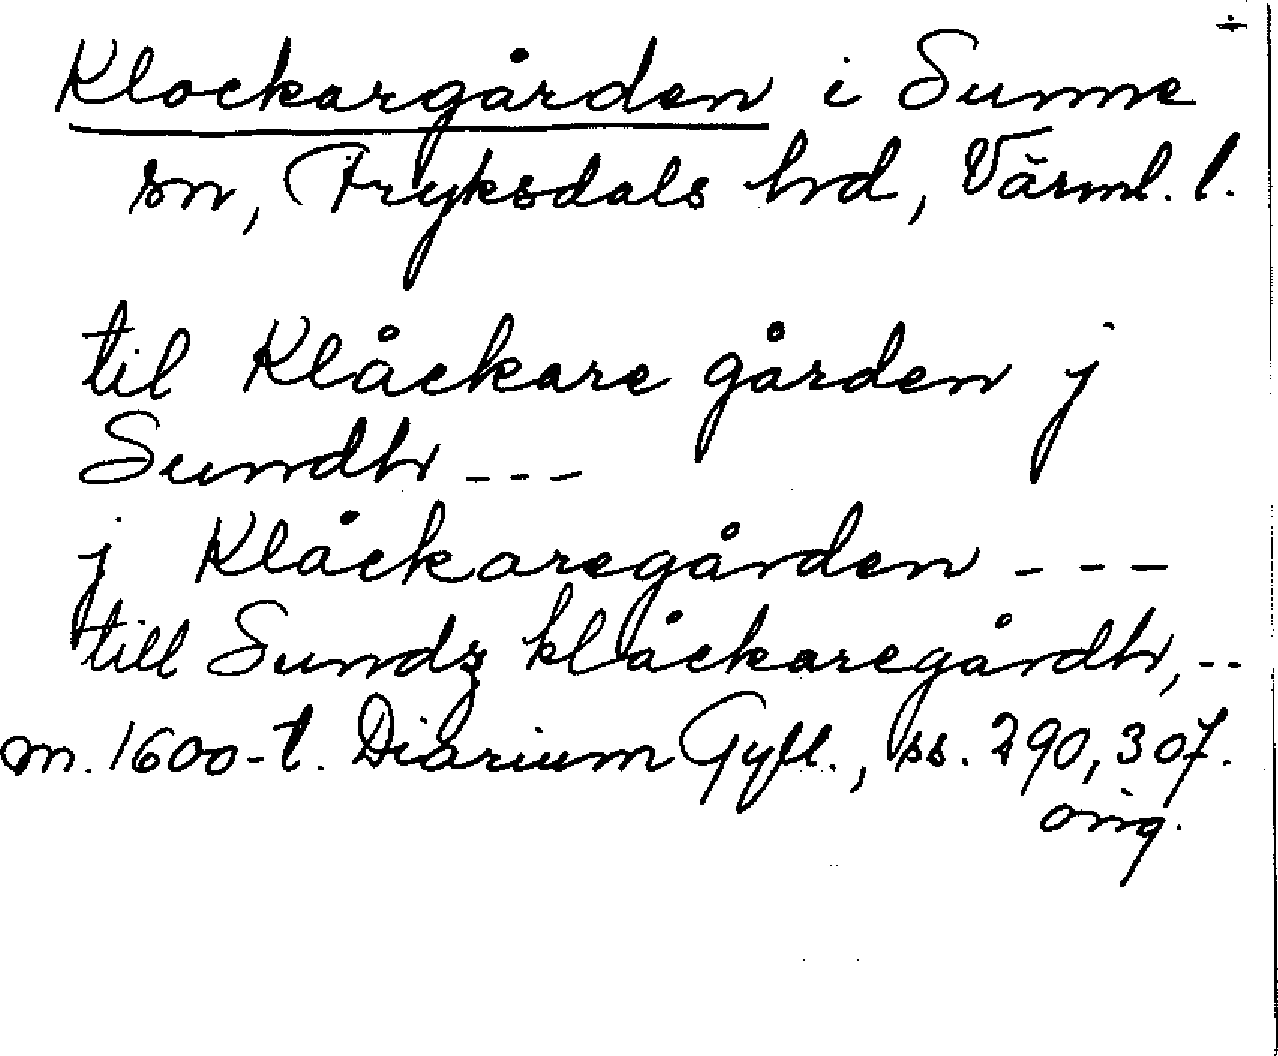 ÷
Klockargården i Sunne
sn, Fryksdals hrd, Värml. l.
til Klåckare gården j
Sundh ---
j Klåckaregården ---
till Sundz klåckaregårdh, --
m. 1600-t. Diarium Gyll., ss. 290, 307.
orig.